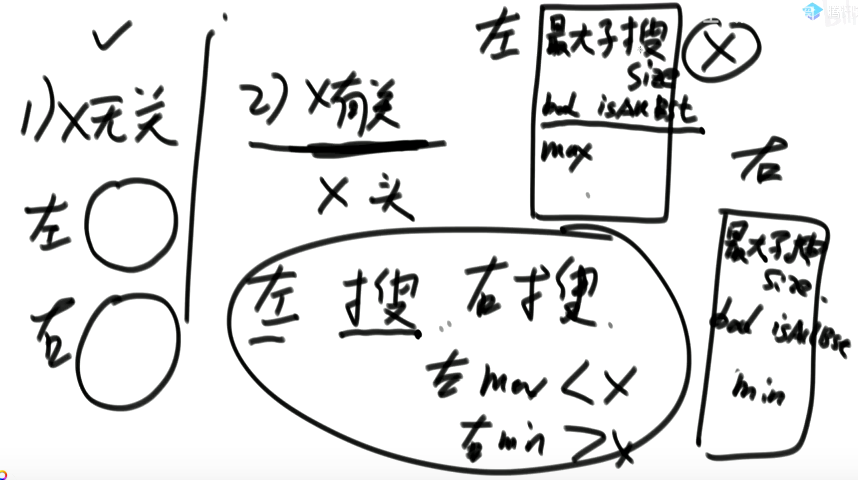 1) X无关
左
右
2) X有关
X 头
左 搜 右搜
左 max < X
右 min > X
左
最大子搜
size
bool isAllBst
max
X
右
最大子搜
size
bool isAllBst
min